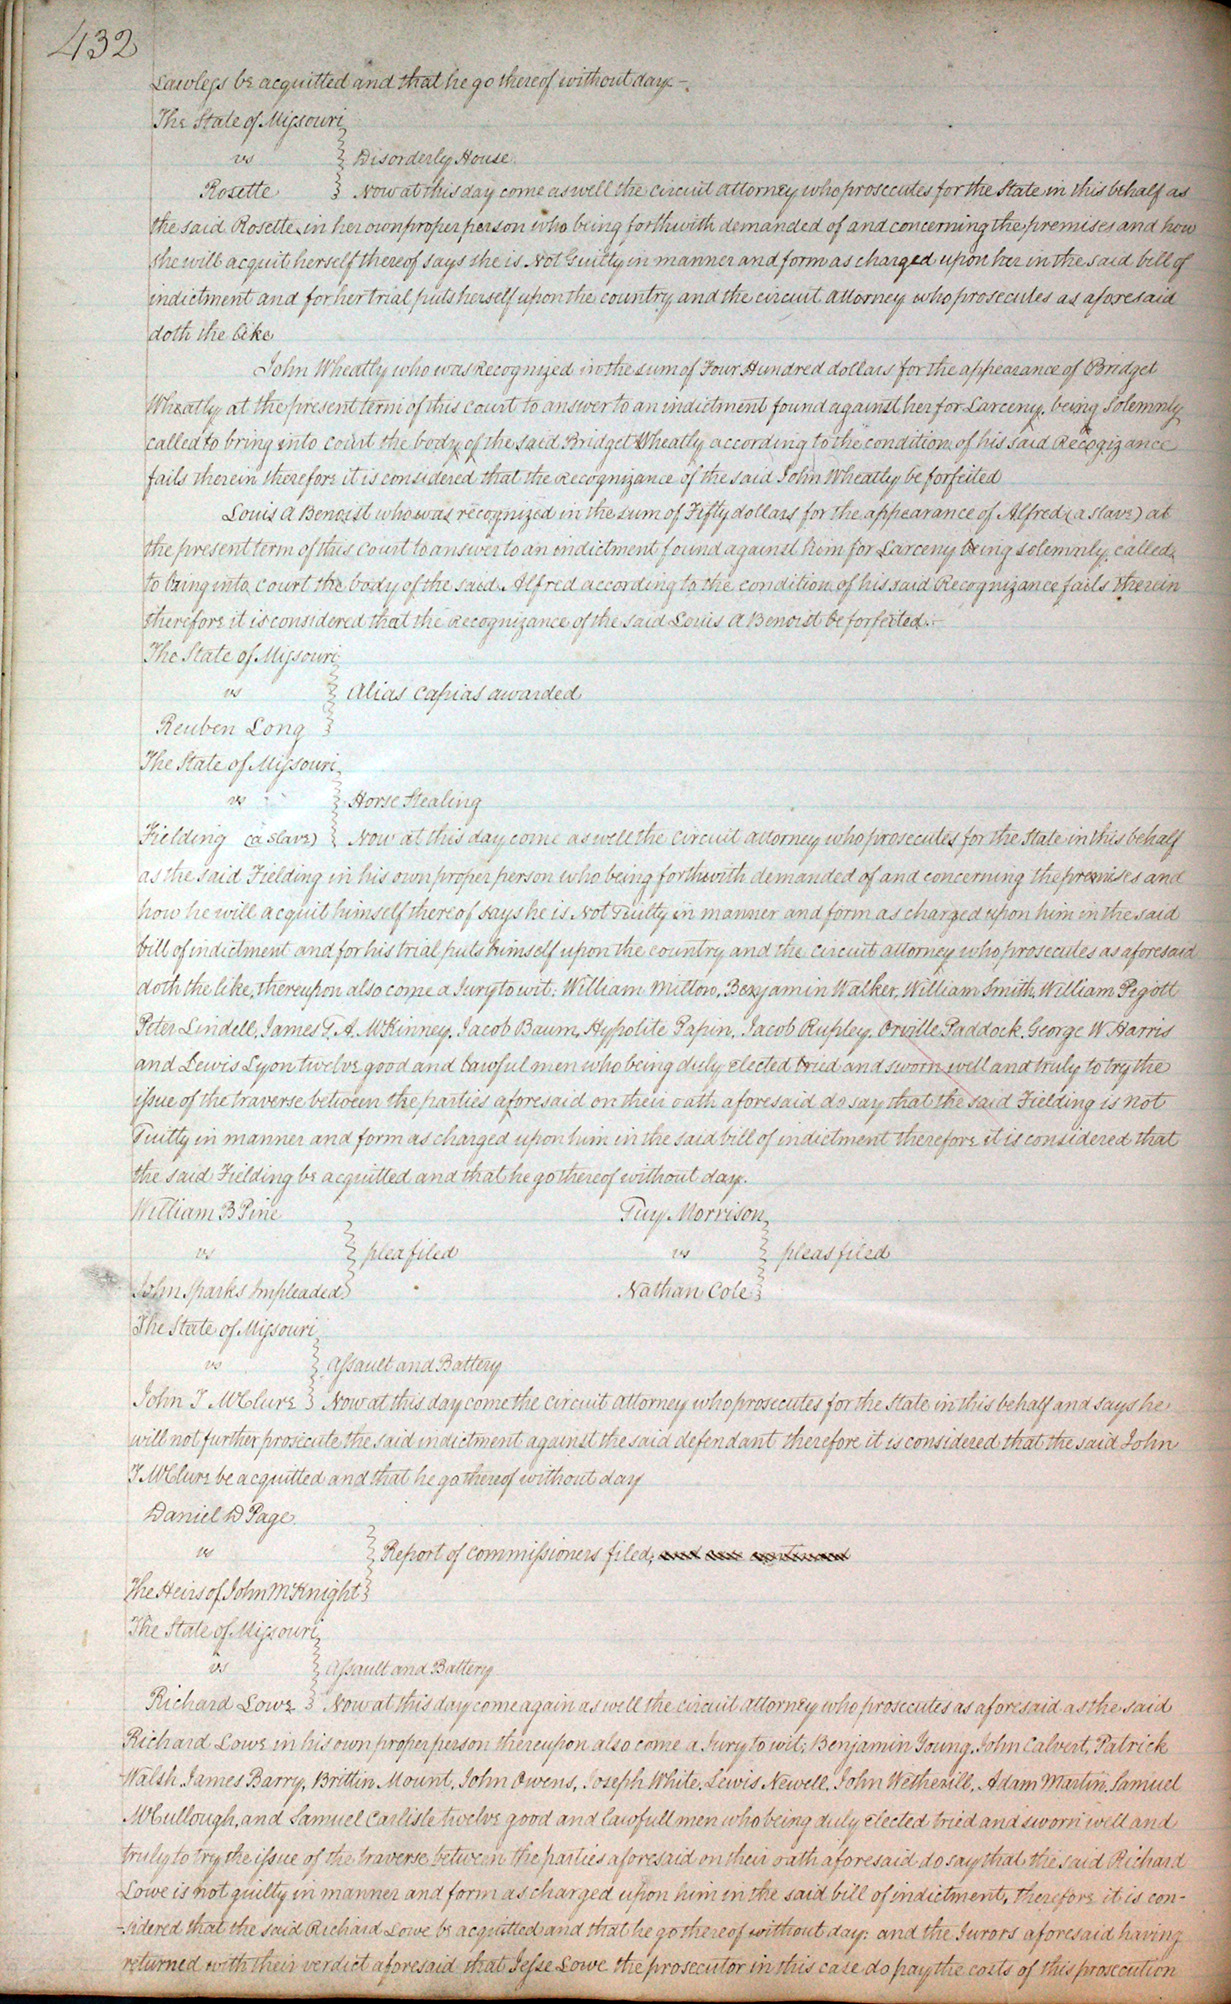 432
Lawless be acquitted and that he go thereof without day -.
The State of Missouri
vs
Disorderly House.
Rosette
Now at this day come as well the circuit attorney who prosecutes for the State in this behalf as
the said Rosette in her own proper person who being forthwith demanded of and concerning the premises and how
she will acquit herself thereof says she is Not Guilty in manner and form as charged upon her in the said bill of
indictment and for her trial puts herself upon the country and the circuit attorney who prosecutes as aforesaid
doth the like
John Wheatly who was Recognized in the sum of Four Hundred dollars for the appearance of Bridget
Wheatly at the present term of this court to answer to an indictment found against her for Larceny. being Solemnly
called to bring into court the body of the said Bridget Wheatly according to the condition of his said Recogizance
fails therein therefore it is considered that the Recognizance of the said John Wheatly be forfeited
Louis A Benoist who was recognized in the sum of Fifty dollars for the appearance of Alfred (a slave) at
the present term of this Court to answer to an indictment found against him for Larceny being solemnly called
to bring into court the body of the said Alfred according to the condition of his said Recognizance fails therein
therefore it is considered that the Recognizance of the said Louis A Benoist be forfeited.-
The State of Missouri
vs
Alias capias awarded
Reuben Long
The State of Missouri
vs
Horse Stealing
Fielding (a slave)
Now at this day come as well the circuit attorney who prosecutes for the State in this behalf
as the said Fielding in his own proper person who being forthwith demanded of and concerning the premises and
how he will acquit himself thereof says he is Not Guilty in manner and form as charged upon him in the said
bill of indictment and for his trial puts himself upon the country and the circuit attorney who prosecutes as aforesaid
doth the like, thereupon also come a Jury to wit: William Milton, Benjamin Walker, William Smith, William Pigott
Peter Lindell, James T. A. McKinney, Jacob Baum, Hypolite Papin, Jacob Rupley, Orville Paddock, George W Harris
and Lewis Lyon twelve good and lawful men who being duly elected tried and sworn well and truly to try the
issue of the traverse between the parties aforesaid on their oath aforesaid do say that the said Fielding is not
Guilty in manner and form as charged upon him in the said bill of indictment therefore it is considered that
the said Fielding be acquitted and that he go thereof without day.
William B Pine
vs
plea filed
John Sparks Impleaded
Guy Morrison
vs
pleas filed
Nathan Cole
The State of Missouri
vs
Assault and Battery
John T McClure
Now at this day come the circuit attorney who prosecutes for the State in this behalf and says he
will not further prosecute the said indictment against the said defendant therefore it is considered that the said John
T McClure be acquitted and that he go thereof without day
Daniel D Page
vs
Report of commissioners filed,
The Heirs of John McKnight
The State of Missouri
vs
Assault and Battery
Richard Lowe
Now at this day come again as well the circuit attorney who prosecutes as aforesaid as the said
Richard Lowe in his own proper person thereupon also come a Jury to wit; Benjamin Young, John Calvert, Patrick
Walsh James Barry, Brittin Mount, John Owens, Joseph White, Lewis Newell, John Wetherill, Adam Martin, Samuel
McCullough, and Samuel Carlisle twelve good and lawfull men who being duly elected tried and sworn well and
truly to try the issue of the traverse between the parties aforesaid on their oath aforesaid do say that the said Richard
Lowe is not guilty in manner and form as charged upon him in the said bill of indictment, therefore it is con-
-sidered that the said Richard Lowe be acquitted and that he go thereof without day: and the Jurors aforesaid having
returned with their verdict aforesaid that Jesse Lowe the prosecutor in this case do pay the costs of this prosecution